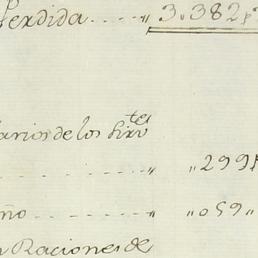 Perdida.....„ 3.382,
larios de los Sirv.tes
.......„ „299
ño.....„ „059„
n Raciones de